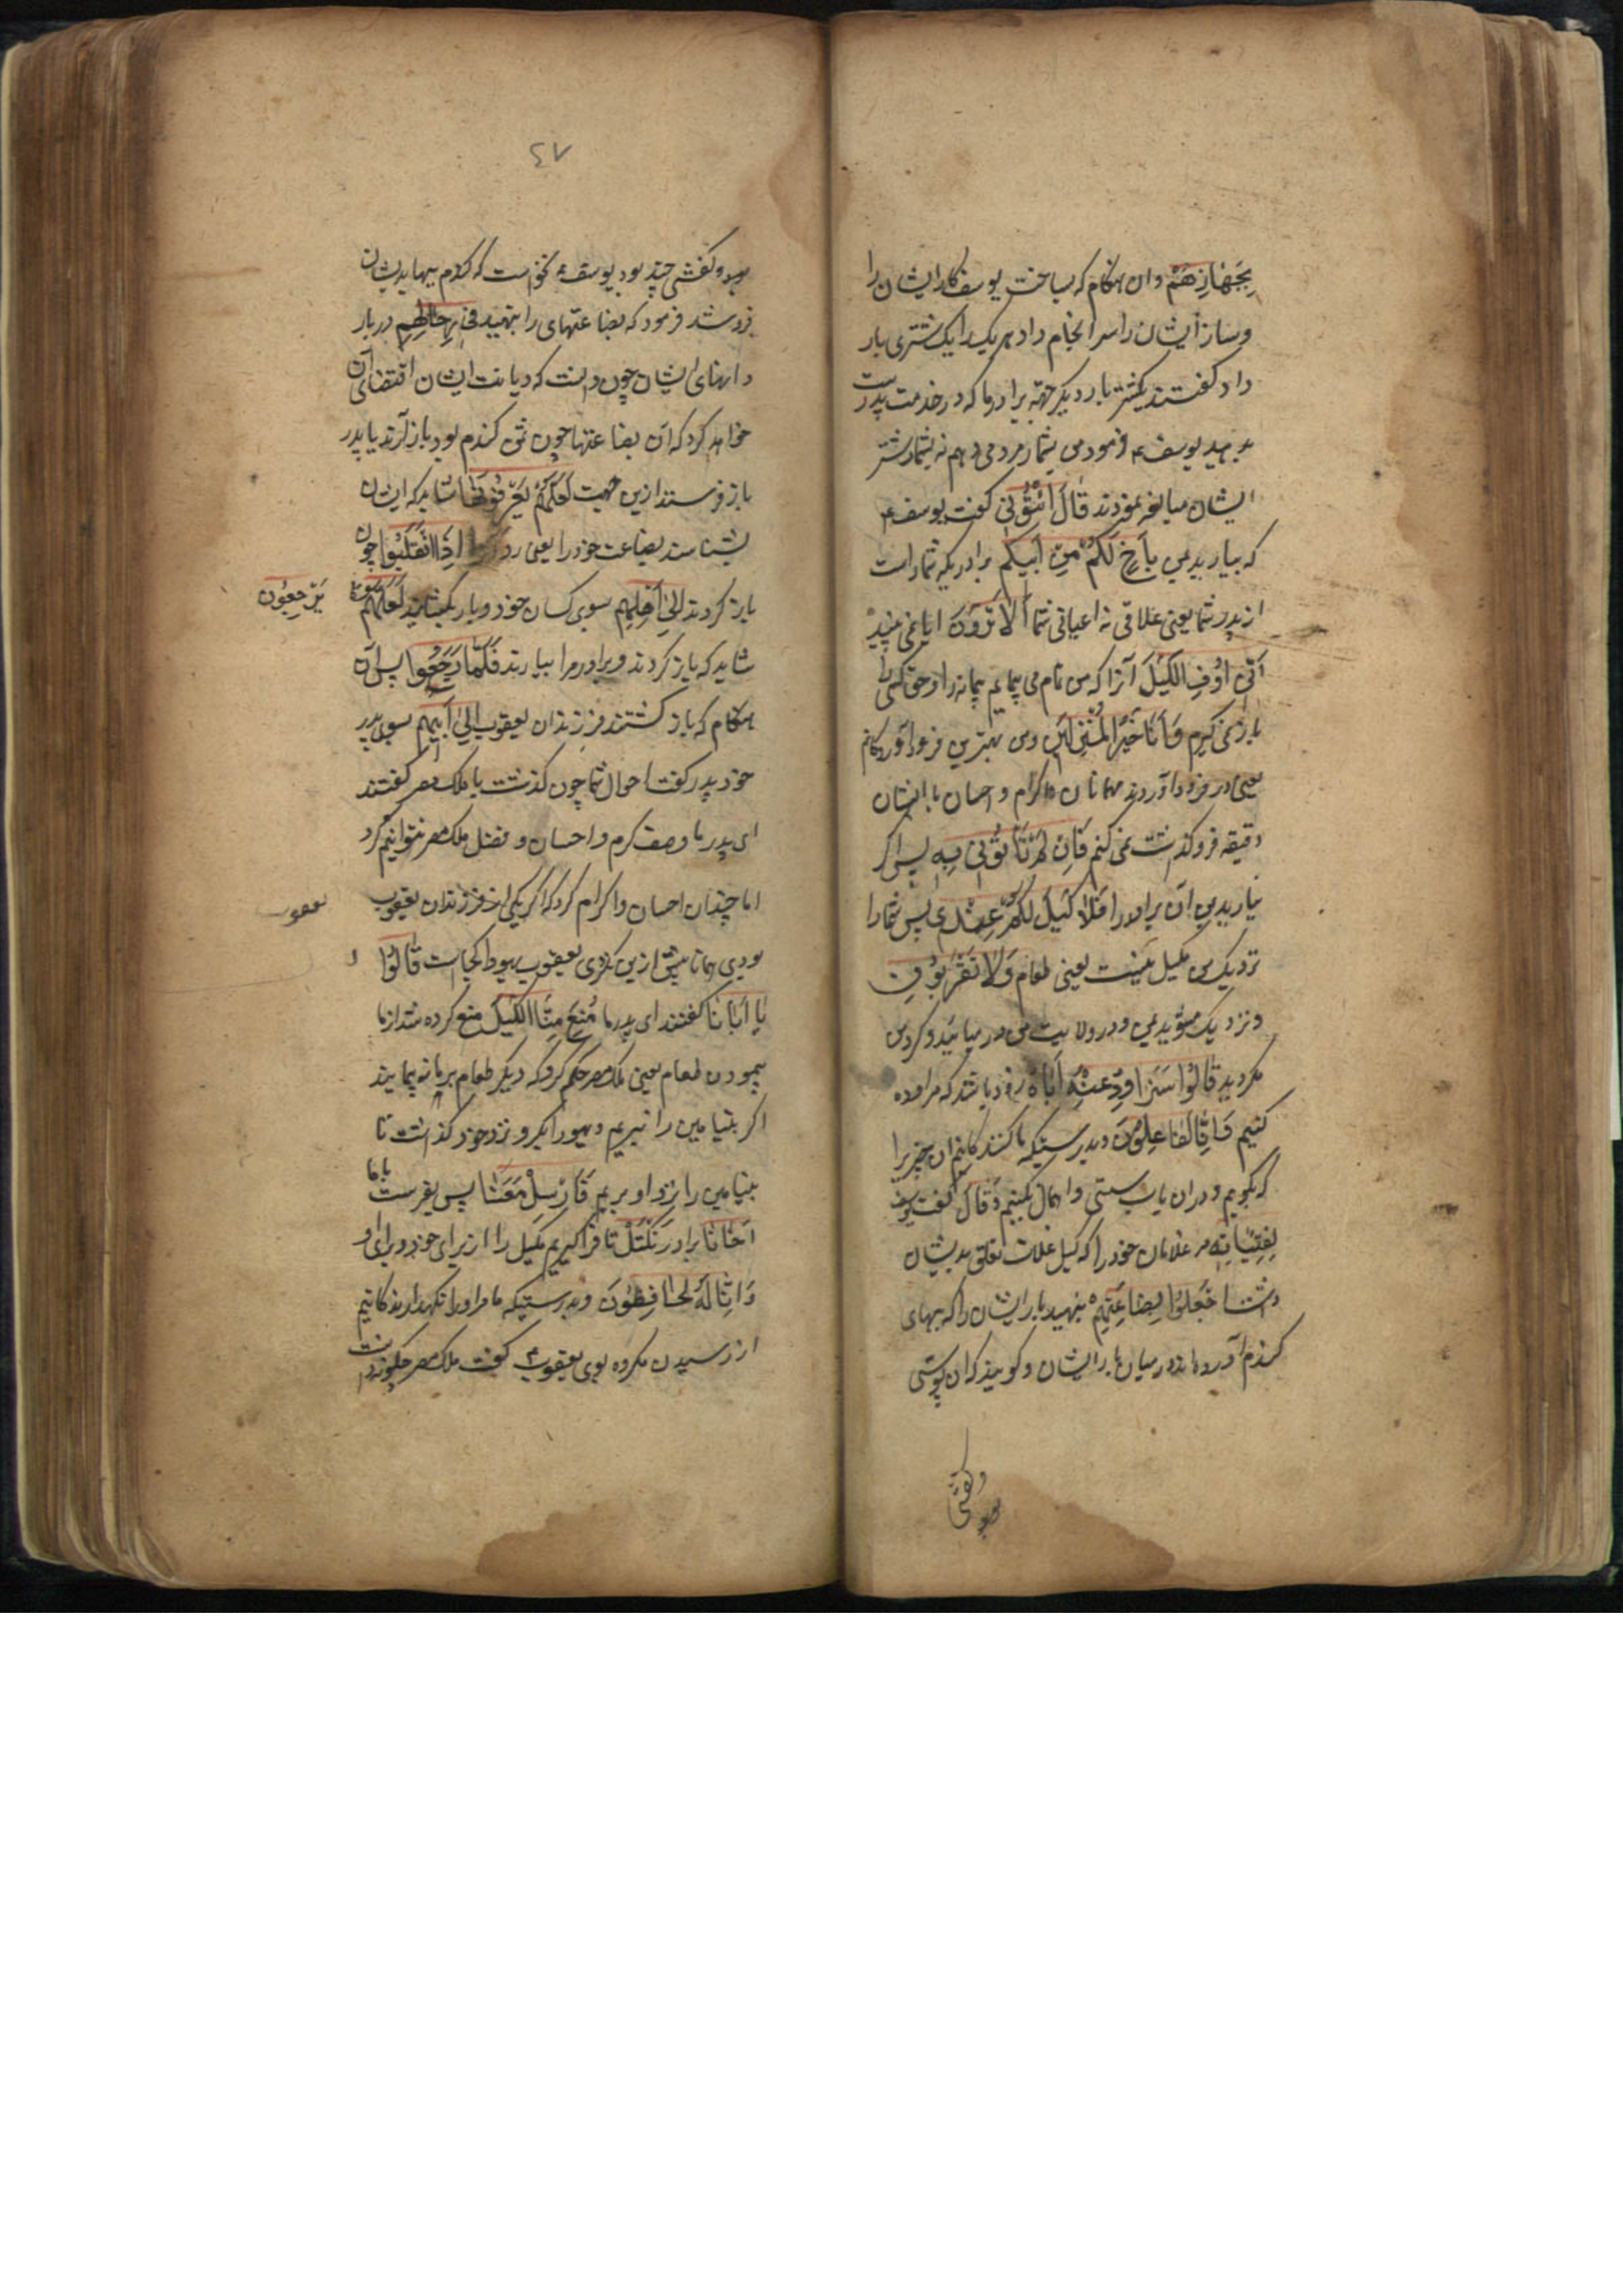 بِجَهَازِهِمْ وان هنکام که بساخت یوسف کار ایشان را
وساز ایشان را سر انجام داد هریک را یک شتری بار
داد کفتند یکشتر بار دیکر جهة برادر ما که در خدمت پدر است
بدهید یوسف ع فرمود من بشمار مردم می دهم نه بشمار شتر
ایشان مبالغه نمودند قَالَ ائْتُونِی کفت یوسف ع
که بیارید بمن بِاَخٍ لَکُمْ مِنْ اَبِیکُمْ برادریکه شما راست
از پدر شما یعنی علاقی نه اعیانی شما اَلَا تَرَوْنَ ایا نمی بینید
اَنِّی اُوفِ الْکَیْلَ آنرا که من تمام می پیمایم پیمانه را و حق کسی را
باز نمی کیرم وَاَنَا خَیْرُ الْمُنْزِلِینَ ومن بهترین فرود آورندکانم
یعنی در فرود آوردن مهمانان و اکرام و احسان با ایشان
دقیقه فرو کذاشت نمی کنم فَاِنْ لَمْ تَأْتُونِی بِهِ پس اکر
نیارید بمن آن برادر را فَلَا کَیْلَ لَکُمْ عِنْدِی پس شما را
نزدیک من مکیل نیست یعنی طعام وَلَا تَقْرَبُونِ
ونزدیک مشوید بمن و در ولایت من در میائید و کرد من
مکردید قَالُوا سَنُرَاوِدُ عَنْهُ اَبَاهُ زود باشد که مراوده
کنیم وَاِنَّا لَفَاعِلُونَ وبدرستیکه ما کنندکانیم ان چیز را
که بکوییم و دران باب سستی و اهمال نکنیم وَقَالَ کفت یوسف
لِفِتْیَانِهِ مر غلامان خود را که کیل غلات تعلق بدیشان
داشت اجْعَلُوا بِضَاعَتَهُمْ بنهید بار ایشان را که بهای
کندم آورده اند در میان بار ایشان و کویند که ان پوستی
وکفشی
٤٧
بود وکفشی چند بود یوسف ع نخواست که کندم ببها بدیشان
فروشد فرمود که بضاعتهای را بنهید فِی رِحَالِهِمْ در بار
دانهای ایشان چون دانست که دیانت ایشان اقتضای آن
خواهد کرد که آن بضاعتها چون ثمن کندم بود باز آرند یا پدر
باز فرستد ازین جهت لَعَلَّهُمْ یَعْرِفُونَهَا شاید که ایشان
بشناسند بضاعت خود را یعنی اِذَا انْقَلَبُوا چون
باز کردند اِلَی اَهْلِهِمْ بسوی کسان خود و بار بکشایند لَعَلَّهُمْ
یَرْجِعُونَ
شاید که باز کردند وبرادر مرا بیارند فَلَمَّا رَجَعُوا پس آن
هنکام که باز کشتند فرزندان یعقوب اِلَی اَبِیهِمْ بسوی پدر
خود پدر کفت احوال شما چون کذشت با ملک مصر کفتند
ای پدر ما وصف کرم و احسان و فضل ملک مصر نتوانیم کرد
اما چندان احسان و اکرام کرد که اکر یکی از فرزندان یعقوب
یعقوب
بودی همانا بیش ازین نکردی یعقوب یهودا کجاست قَالُوا
یَا اَبَانَا کفتند ای پدر ما مُنِعَ مِنَّا الْکَیْلُ منع کرده شد از ما
پیمودن طعام یعنی ملک مصر حکم کرد که دیکر طعام بر ما نه پیمایند
اکر بنیامین را نبریم و نزد خود کذاشت تا
بنیامین را نزد او بریم فَاَرْسِلْ مَعَنَا پس بفرست با ما
اَخَانَا برادر نَکْتَلْ تا فراکیریم مکیل را از برای خود وبرای او
وَاِنَّا لَهُ لَحَافِظُونَ وبدرستیکه ما مر او را نکهدارندکانیم
از رسیدن مکروه بوی یعقوب ع کفت ملک مصر چکونه دانست